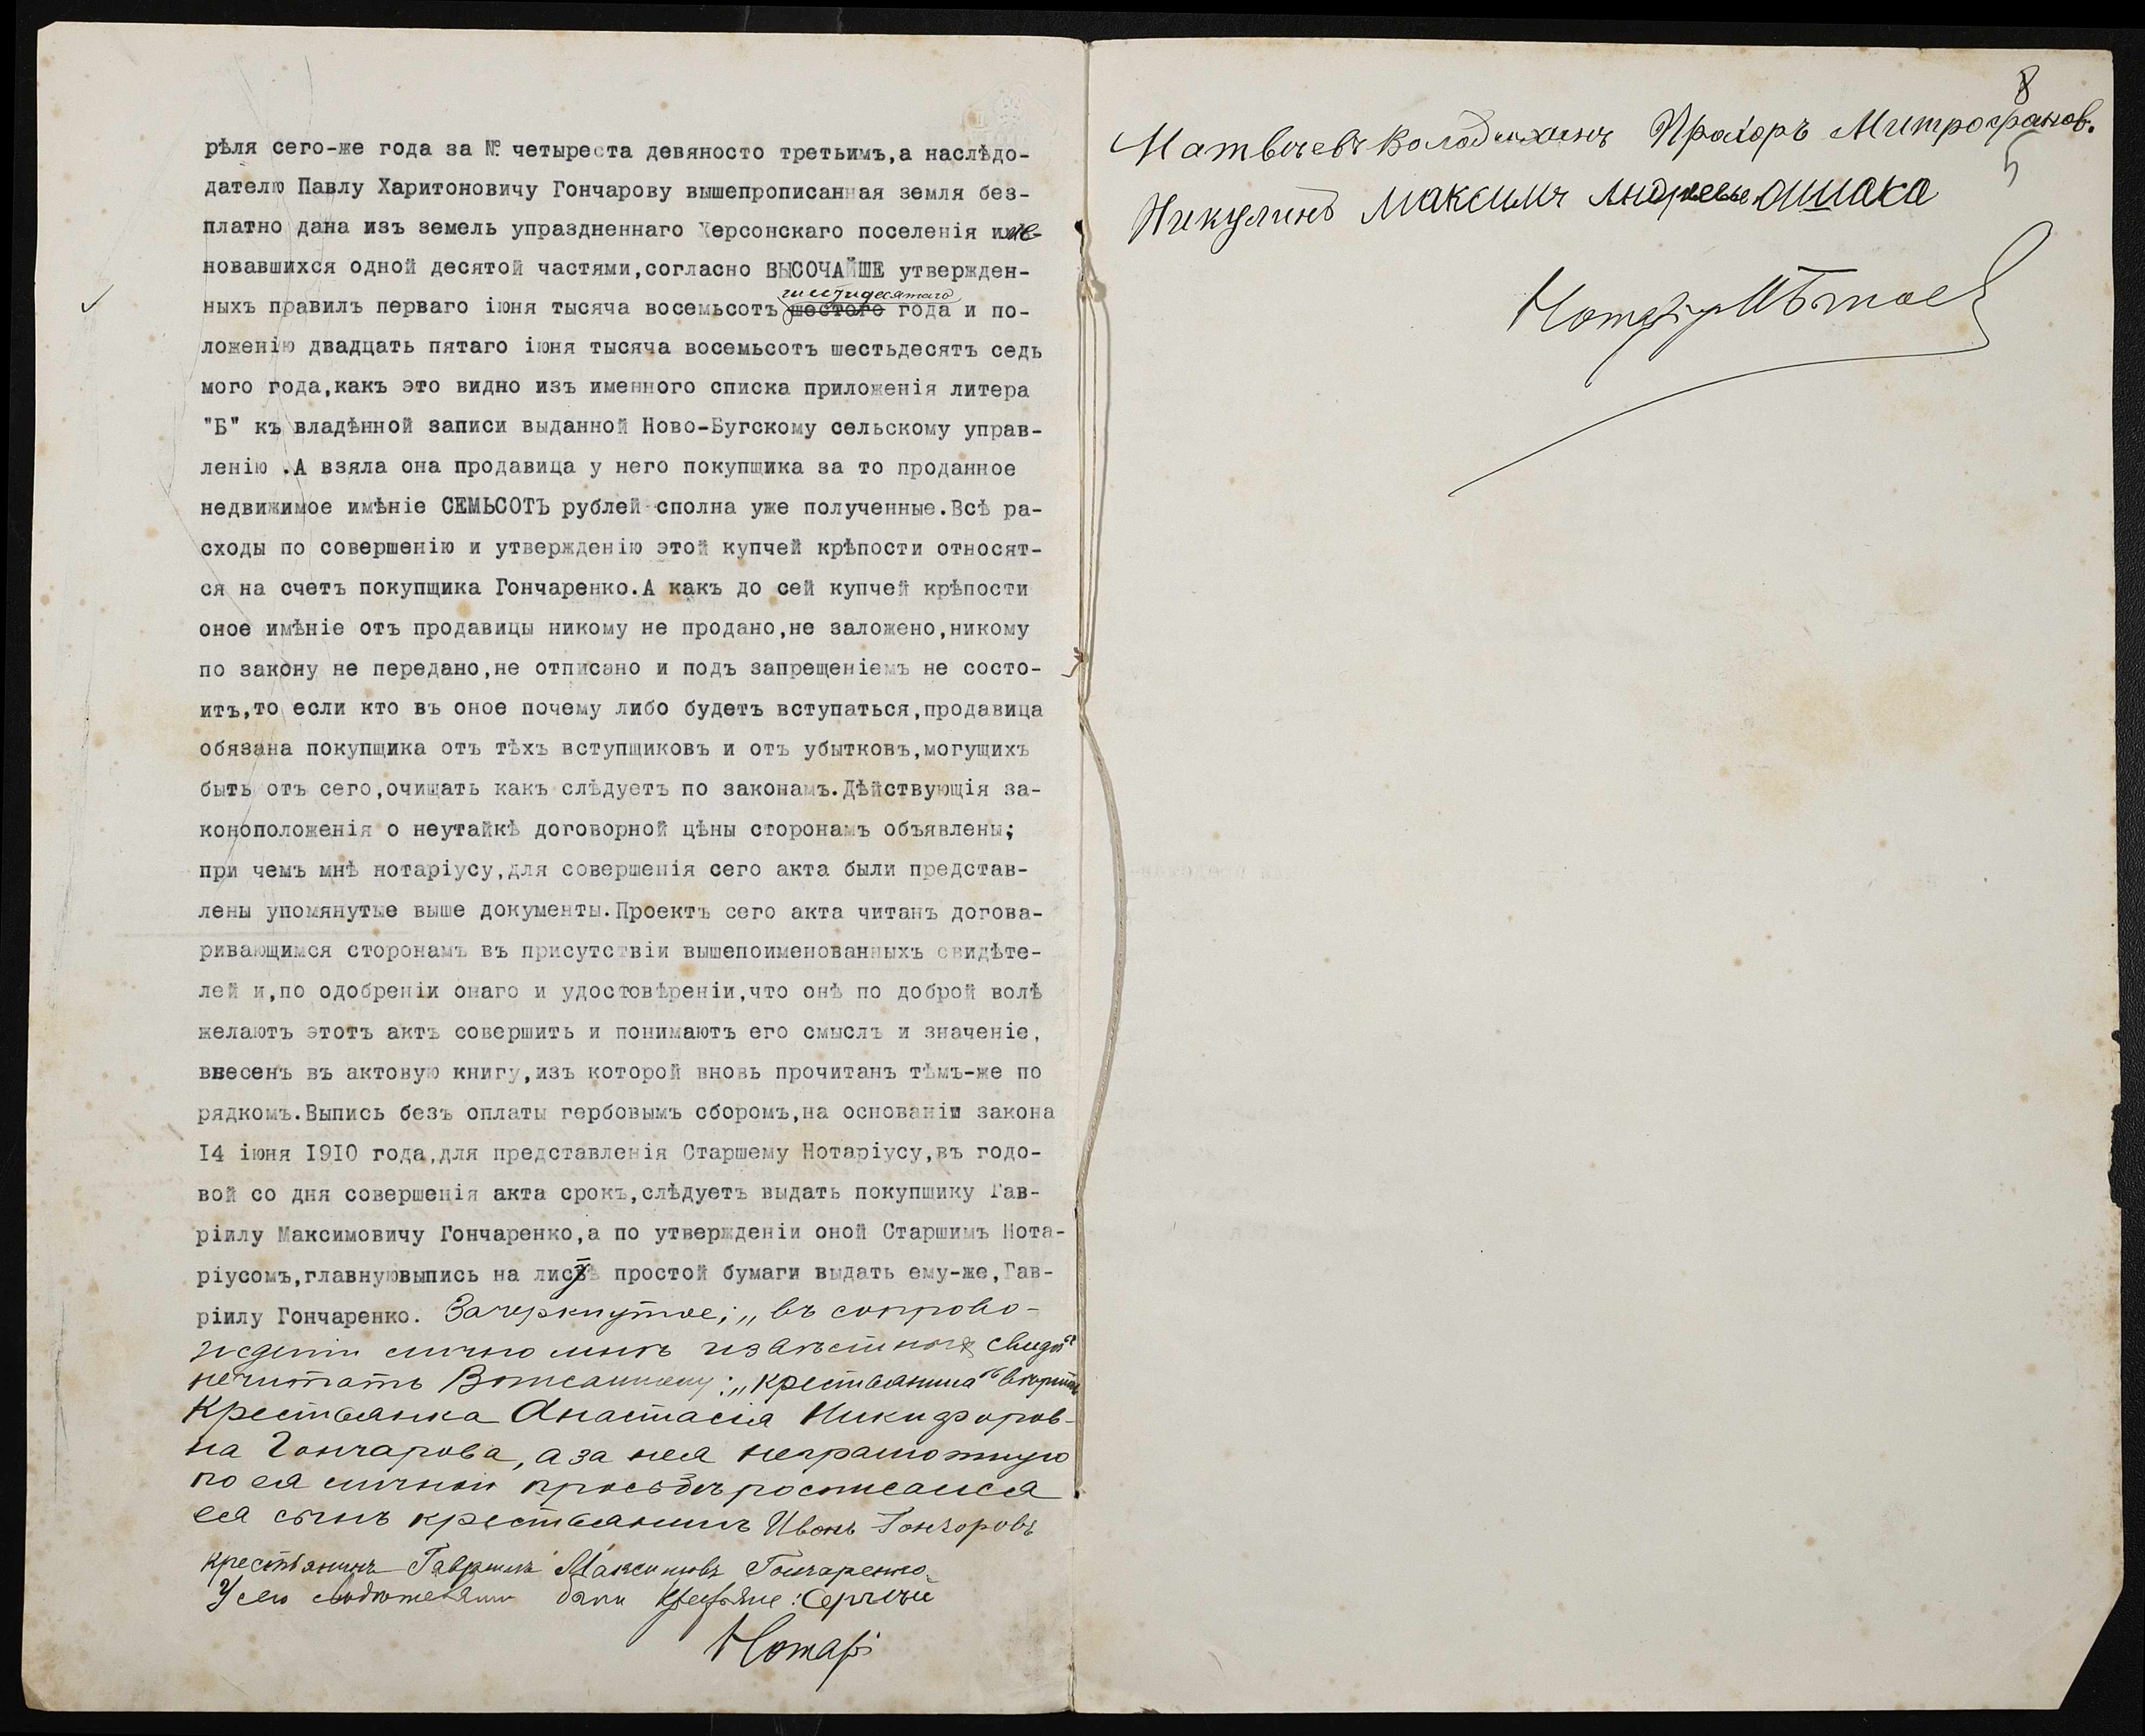 рѣля сего-же года за № четыреста девяносто третьимъ,а наслѣдо-
дателю Павлу Харитоновичу Гончарову вышепрописанная земля без-
платно дана изъ земель упраздненнаго Херсонскаго поселенія име-
новавшихся одной десятой частями,согласно ВЫСОЧАЙШЕ утвержден-
шестидесятаго
ныхъ правилъ перваго іюня тысяча восемьсотъ шестого года и по-
ложенію двадцать пятаго іюня тысяча восемьсотъ шестьдесятъ седь
мого года,какъ это видно изъ именного списка приложенія литера
"Б" къ владѣнной записи выданной Ново-Бугскому сельскому управ-
ленію .А взяла она продавица у него покупщика за то проданное
недвижимое имѣніе СЕМЬСОТЪ рублей сполна уже полученные.Всѣ ра-
сходы по совершенію и утвержденію этой купчей крѣпости относят-
ся на счетъ покупщика Гончаренко.А какъ до сей купчей крѣпости
оное имѣніе отъ продавицы никому не продано,не заложено,никому
по закону не передано,не отписано и подъ запрещеніемъ не состо-
итъ,то если кто въ оное почему либо будетъ вступаться,продавица
обязана покупщика отъ тѣхъ вступщиковъ и отъ убытковъ,могущихъ
быть отъ сего,очищать какъ слѣдуетъ по законамъ.Дѣйствующія за-
коноположенія о неутайкѣ договорной цѣны сторонамъ объявлены;
при чемъ мнѣ нотаріусу,для совершенія сего акта были представ-
лены упомянутые выше документы.Проектъ сего акта читанъ догова-
ривающимся сторонамъ въ присутствіи вышепоименованныхъ свидѣте-
лей и,по одобреніи онаго и удостовѣреніи,что онѣ по доброй волѣ
желаютъ этотъ актъ совершить и понимаютъ его смыслъ и значеніе,
внесенъ въ актовую книгу,изъ которой вновь прочитанъ тѣмъ-же по
рядкомъ.Выпись безъ оплаты гербовымъ сборомъ,на основаніи закона
I4 іюня I9I0 года,для представленія Старшему Нотаріусу,въ годо-
вой со дня совершенія акта срокъ,слѣдуетъ выдать покупщику Гав-
ріилу Максимовичу Гончаренко,а по утвержденіи оной Старшимъ Нота-
ріусомъ,главнуювыпись на листѣ простой бумаги выдать ему-же,Гав-
ріилу Гончаренко. Зачеркнутое; „въ сопрово-
жденіи лично мнѣ извѣстныхъ
нечитать „крестьянина"
Крестьянка Анастасія Никифоров-
на Гончарова, а за нея неграмотную
по ея личной просьбѣ росписался
ея сынъ крестьянинъ Иванъ Гончаровъ
крестьянинъ Гавріилъ Максимовъ Гончаренко.
У сего свидѣтелями были крестьяне: Сергѣй
Нотарі
8
Матвѣевъ Володихинъ Прохоръ Митрофанов.
5
Никулинъ Максимъ Андреевъ